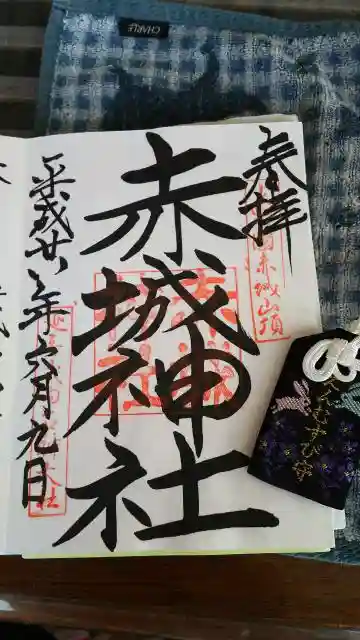 CHARLE
奉拝
赤城神社
平成廿八年六月九日
えんむすび守